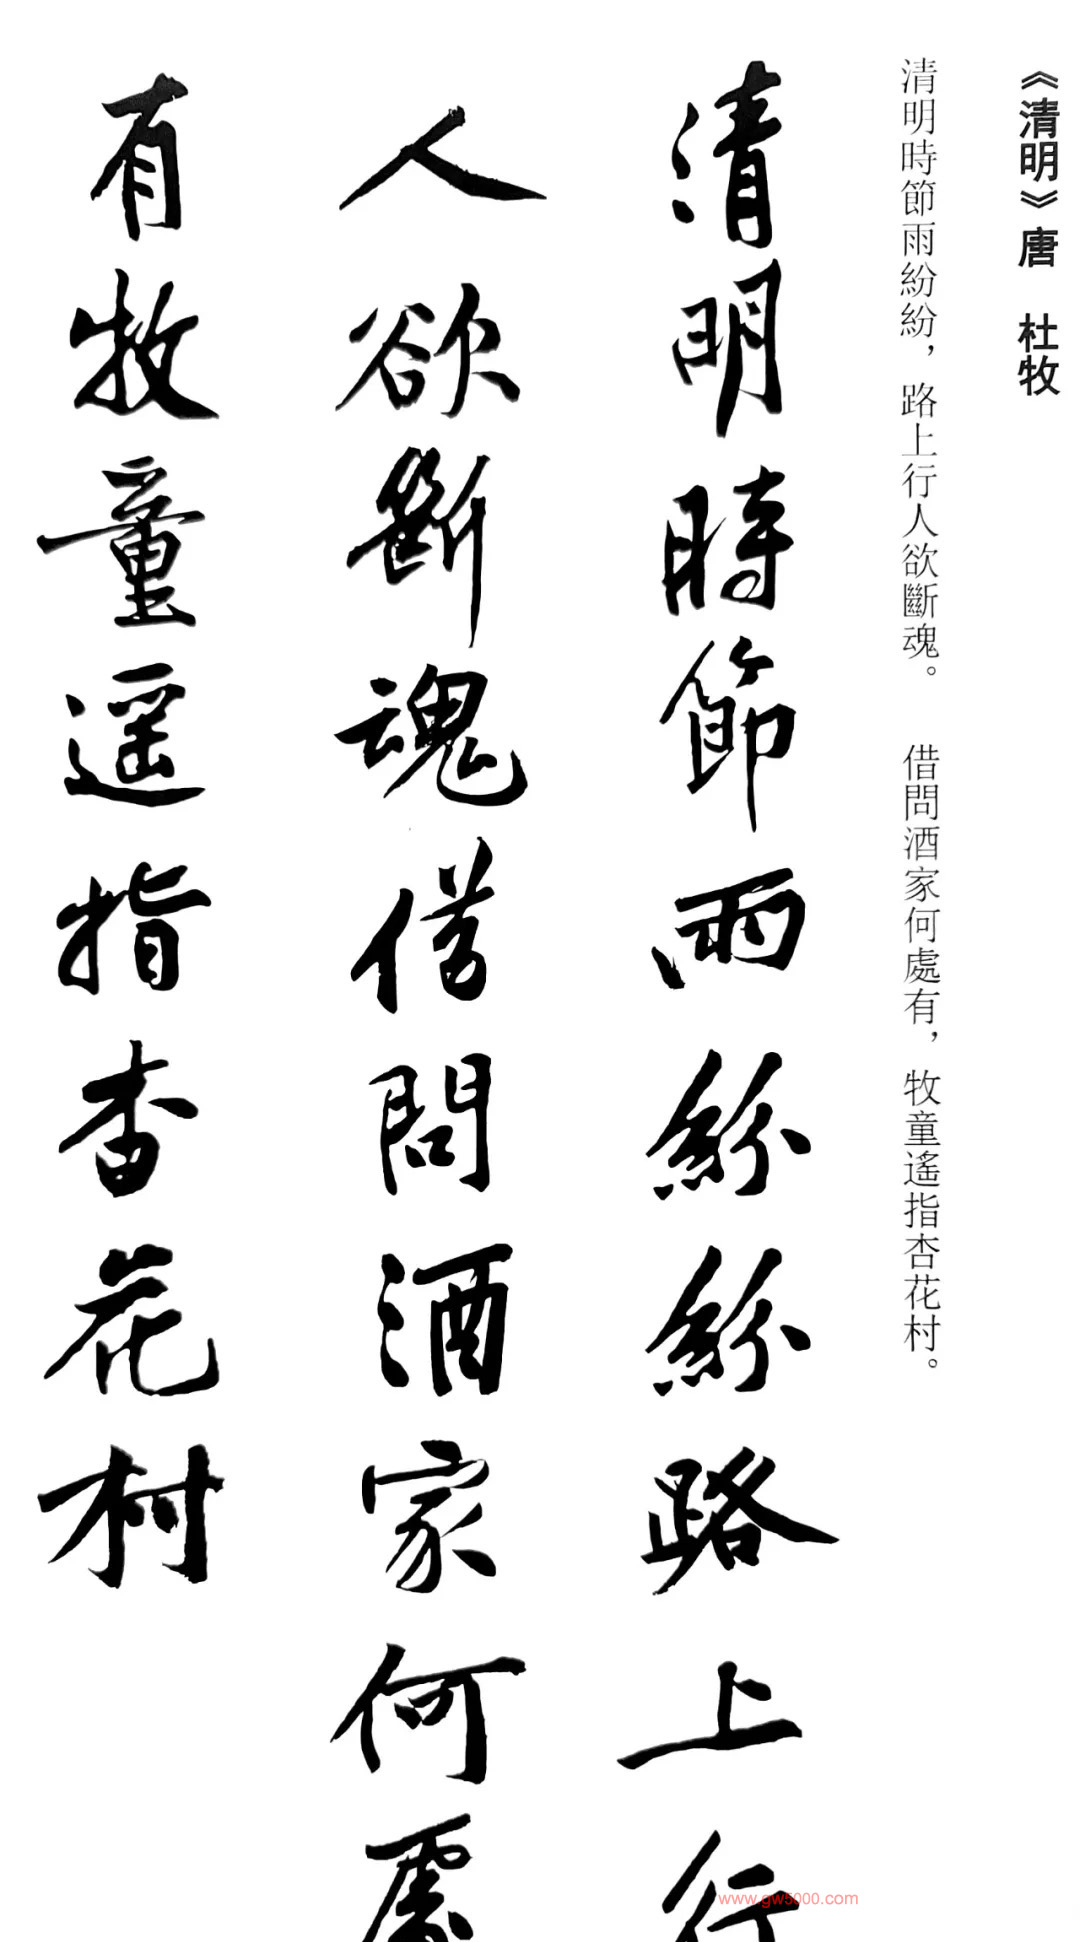 《清明》唐 杜牧
清明時節雨紛紛，路上行人欲斷魂。 借問酒家何處有，牧童遙指杏花村。
清明時節雨紛紛路上行
人欲斷魂借問酒家何處
有牧童遥指杏花村
www.gw5000.com